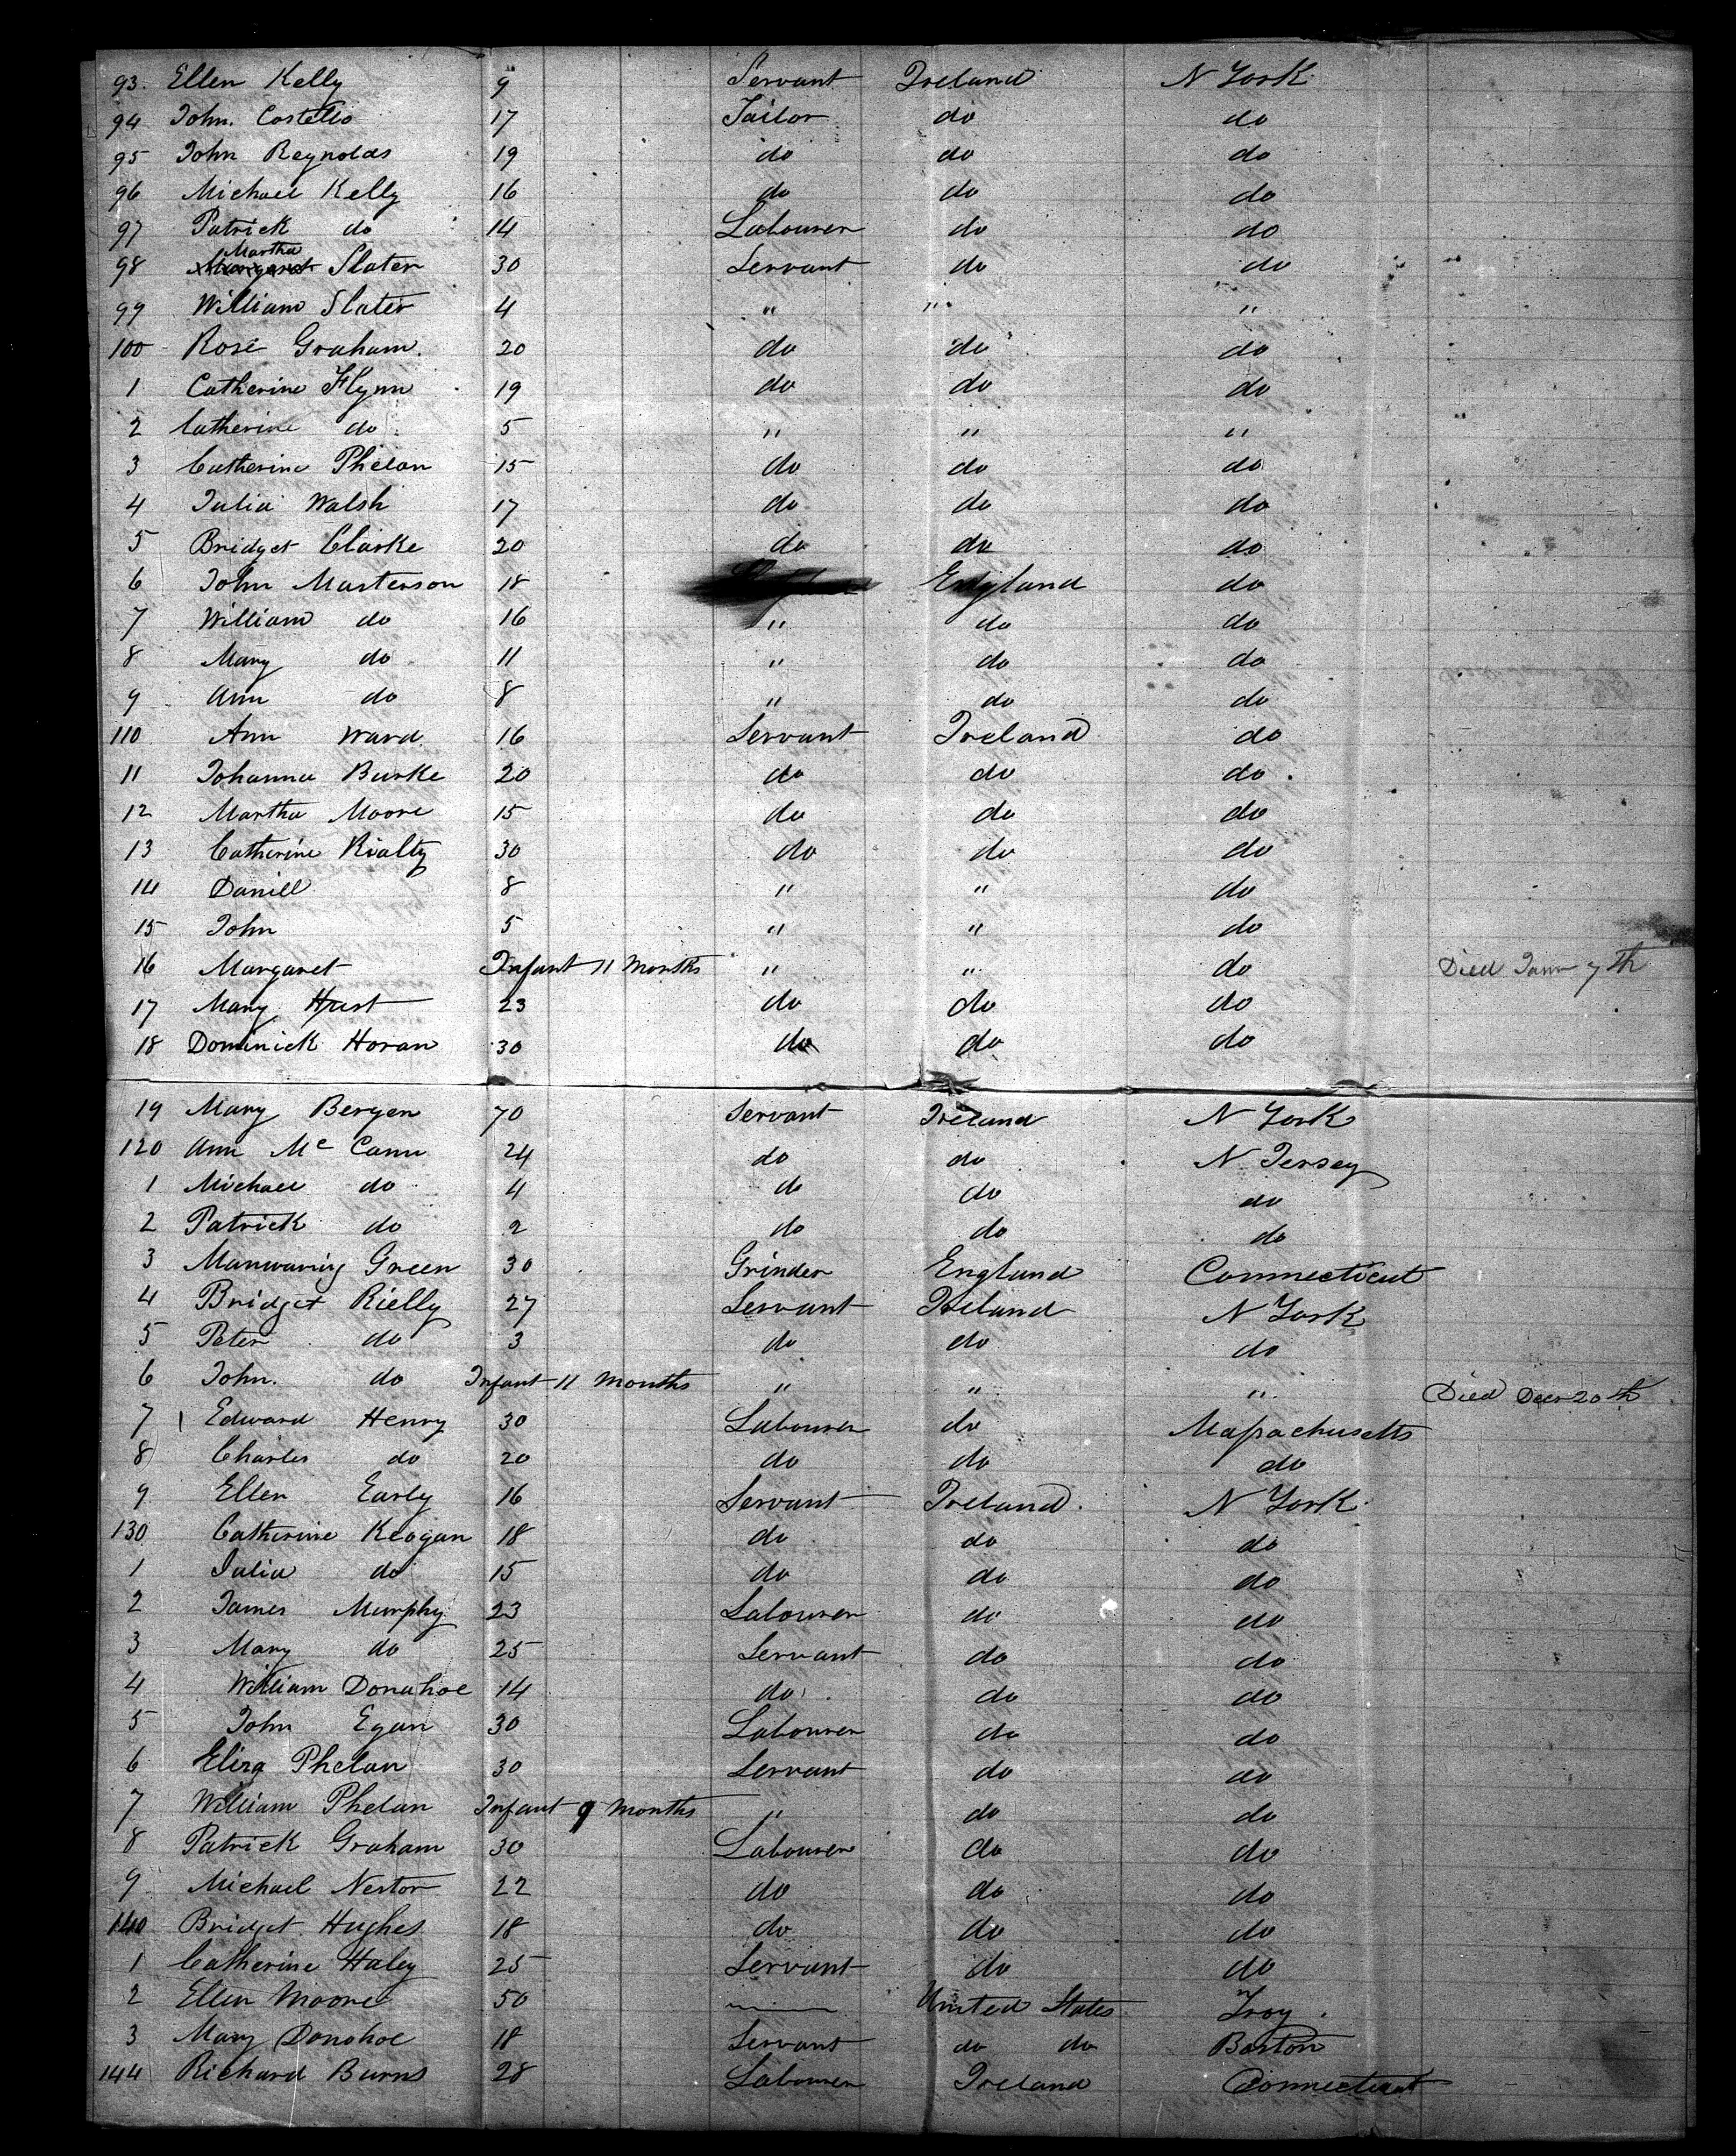 93. Ellen Kelly 9 Servant Ireland N York
94 John. Costello 17 Tailor do do
95 John Reynolds 19 do do do
96 Michael Kelly 16 do do do
97 Patrick do 14 Labourer do do
Martha
98 Margaret Slater 30 Servant do do
99 William Slater 4 " " "
100 Rose Graham. 20 do do do
1 Catherine Flynn 19 do do do
2 Catherine do 5 " " "
3 Catherine Phelan 15 do do do
4 Julia Walsh 17 do do do
5 Bridget Clarke 20 do do do
6 John Masterson 18 England do
7 William do 16 " do do
8 Mary do 11 " do do
9 Ann do 8 " do do
110 Ann Ward 16 Servant Ireland do
11 Johanna Burke 20 do do do
12 Martha Moore 15 do do do
13 Catherine Rialty 30 do do do
14 Daniell 8 " " do
15 John 5 " " do
16 Margaret Infant 11 Months " " do Died Jany 7th
17 Mary Hurst 23 do do do
18 Dominick Horan 30 do do do
19 Mary Bergen 70 Servant Ireland N York
120 Ann Mc Cann 24 do do N Jersey
1 Michael do 4 do do do
2 Patrick do 2 do do do
3 Manwaring Green 30 Grinder England Connecticut
4 Bridget Rielly 27 Servant Ireland N York
5 Peter do 3 do do do
6 John. do Infant 11 Months " " " Died Decr 20th
7 Edward Henry 30 Labourer do Massachusetts
8 Charles do 20 do do do
9 Ellen Early 16 Servant Ireland N York
130 Catherine Keogan 18 do do do
1 Julia do 15 do do do
2 James Murphy 23 Labourer do do
3 Mary do 25 Servant do do
4 William Donahoe 14 do do do
5 John Egan 30 Labourer do do
6 Eliza Phelan 30 Servant do do
7 William Phelan Infant 9 Months " do do
8 Patrick Graham 30 Labourer do do
9 Michael Nestor 22 do do do
140 Bridget Hughes 18 do do do
1 Catherine Haley 25 Servant do do
2 Ellen Moore 50 United States Troy.
3 Mary Donohoe 18 Servant do do Boston
144 Richard Burns 28 Labourer Ireland Connecticut